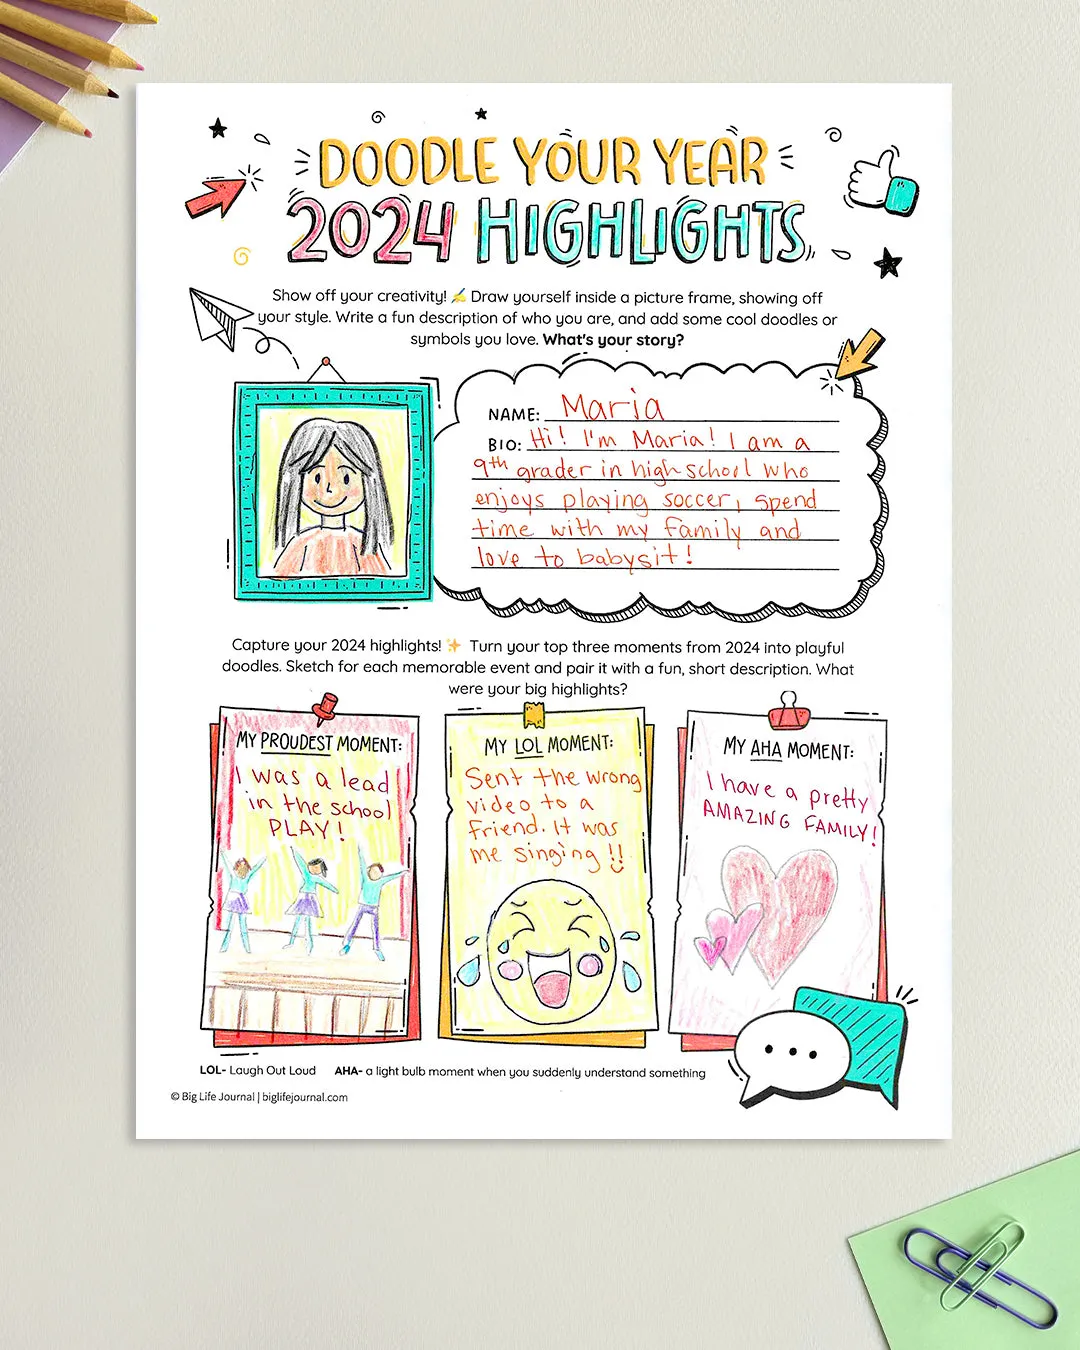 DOODLE YOUR YEAR
2024 HIGHLIGHTS
Show off your creativity! ✍️ Draw yourself inside a picture frame, showing off
your style. Write a fun description of who you are, and add some cool doodles or
symbols you love. What's your story?
NAME: Maria
BIO: Hi! I'm Maria! I am a
9th grader in high school who
enjoys playing soccer, spend
time with my family and
love to babysit!
Capture your 2024 highlights! ✨ Turn your top three moments from 2024 into playful
doodles. Sketch for each memorable event and pair it with a fun, short description. What
were your big highlights?
MY PROUDEST MOMENT:
I was a lead
in the school
PLAY!
MY LOL MOMENT:
Sent the wrong
video to a
friend. It was
me singing!!
MY AHA MOMENT:
I have a pretty
AMAZING FAMILY!
LOL- Laugh Out Loud AHA- a light bulb moment when you suddenly understand something
© Big Life Journal | biglifejournal.com